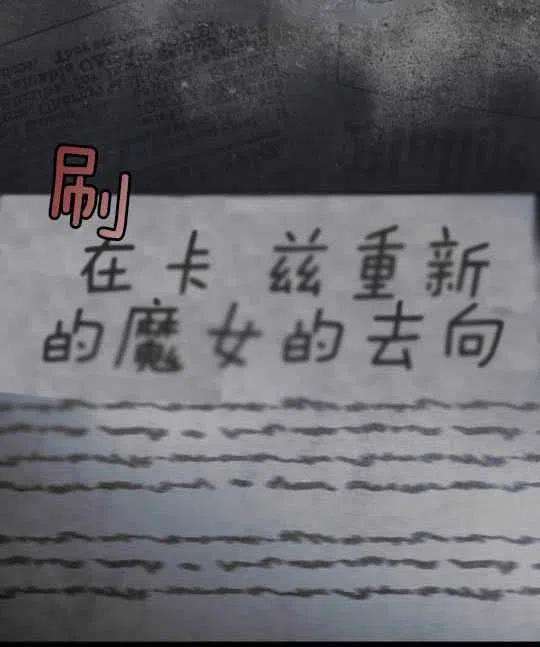 刷
在卡 兹重新
的魔女的去向